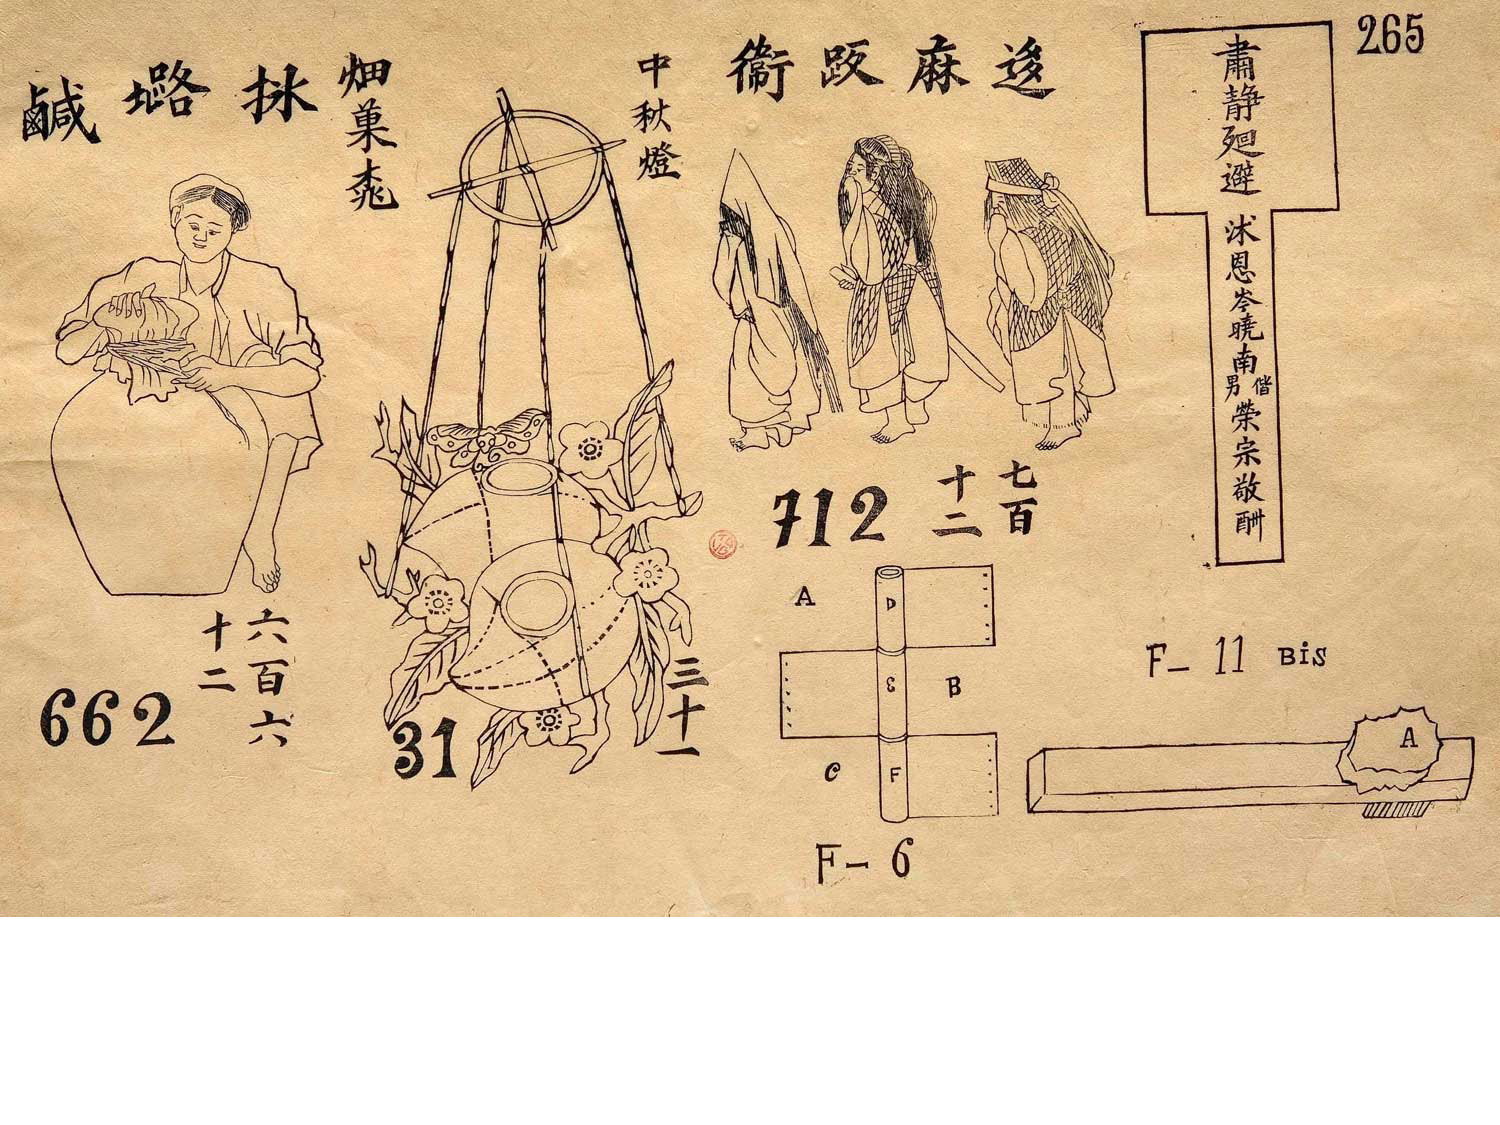 265
肅静廻避
沐恩岑曉南
偕男
榮宗敬酬
麻
衝
712
七百
十二
中秋燈
畑菓
31
三十一
鹹
662
六百六
十二
A
B
C
D
E
F
F-6
F-11 Bis
A